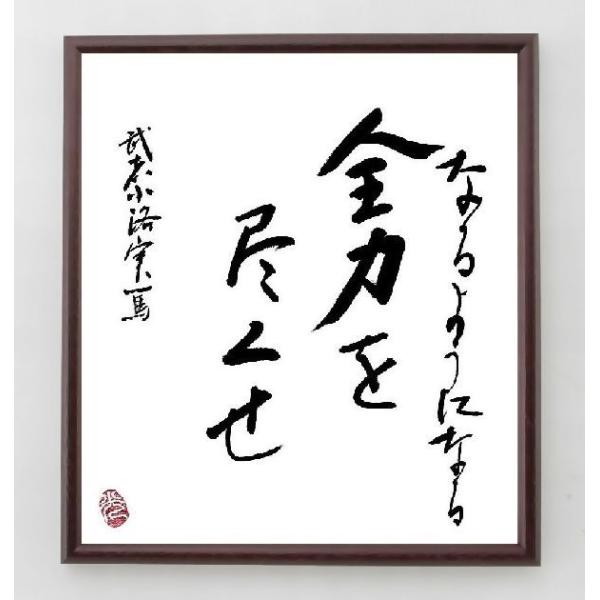 なるようになる
全力を
尽くせ
武者小路実篤